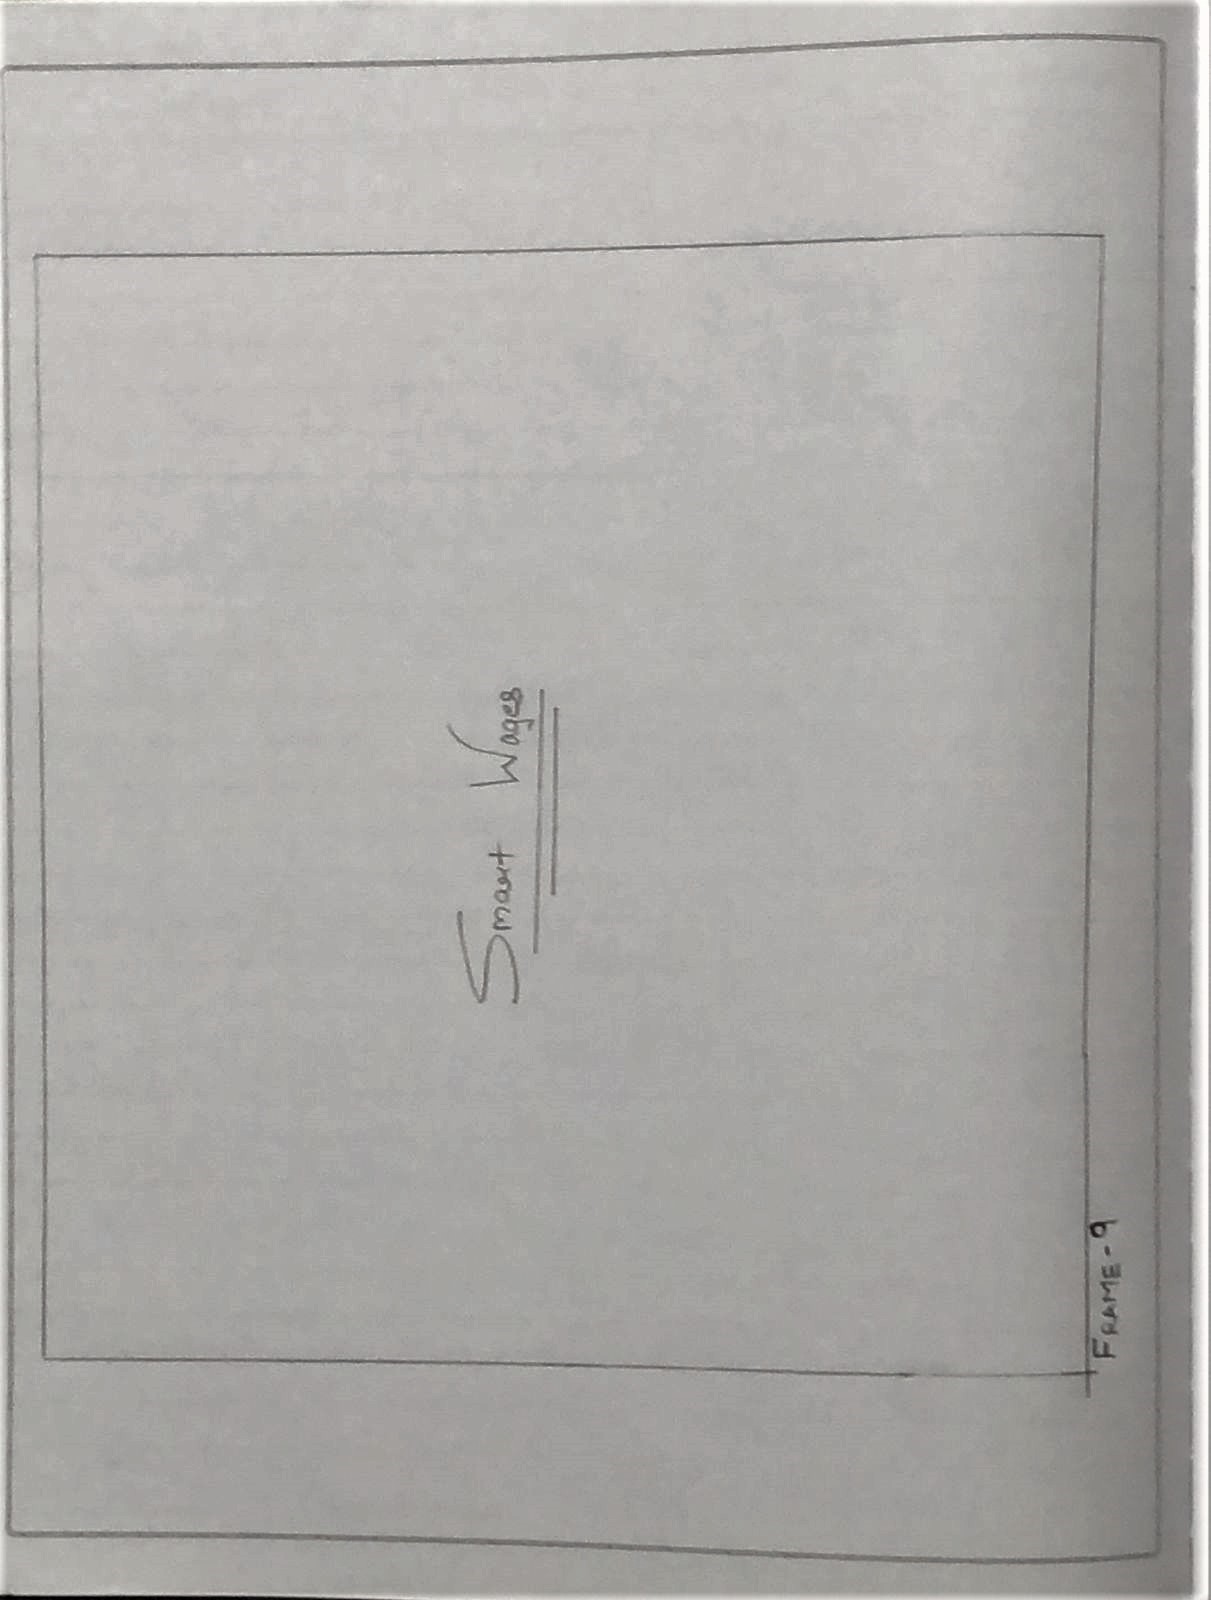 Smart Wages
FRAME-9